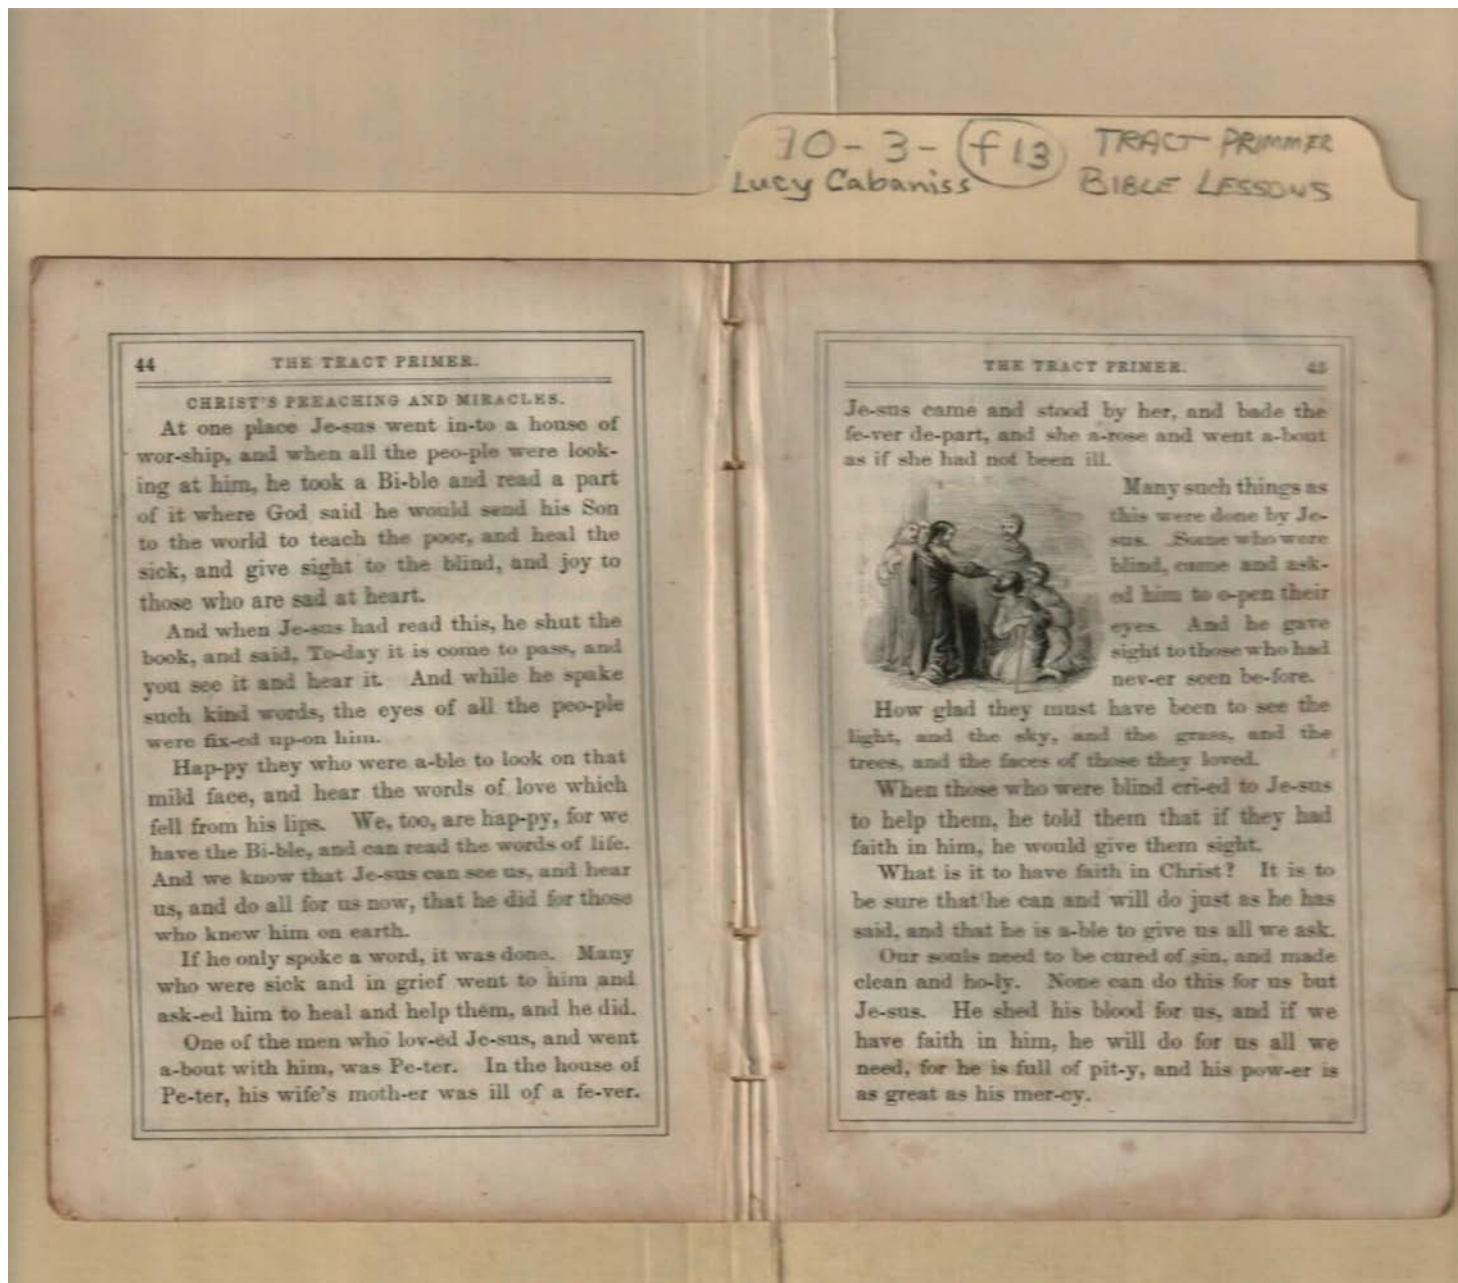 10-3-f13 TRACT PRIMMER
Lucy Cabaniss BIBLE LESSONS
44 THE TRACT PRIMER.
CHRIST'S PREACHING AND MIRACLES.
At one place Je-sus went in-to a house of
wor-ship, and when all the peo-ple were look-
ing at him, he took a Bi-ble and read a part
of it where God said he would send his Son
to the world to teach the poor, and heal the
sick, and give sight to the blind, and joy to
those who are sad at heart.
And when Je-sus had read this, he shut the
book, and said, To-day it is come to pass, and
you see it and hear it. And while he spake
such kind words, the eyes of all the peo-ple
were fix-ed up-on him.
Hap-py they who were a-ble to look on that
mild face, and hear the words of love which
fell from his lips. We, too, are hap-py, for we
have the Bi-ble, and can read the words of life.
And we know that Je-sus can see us, and hear
us, and do all for us now, that he did for those
who knew him on earth.
If he only spoke a word, it was done. Many
who were sick and in grief went to him and
ask-ed him to heal and help them, and he did.
One of the men who lov-ed Je-sus, and went
a-bout with him, was Pe-ter. In the house of
Pe-ter, his wife's moth-er was ill of a fe-ver.
THE TRACT PRIMER. 45
Je-sus came and stood by her, and bade the
fe-ver de-part, and she a-rose and went a-bout
as if she had not been ill.
Many such things as
this were done by Je-
sus. Some who were
blind, came and ask-
ed him to o-pen their
eyes. And he gave
sight to those who had
nev-er seen be-fore.
How glad they must have been to see the
light, and the sky, and the grass, and the
trees, and the faces of those they loved.
When those who were blind cri-ed to Je-sus
to help them, he told them that if they had
faith in him, he would give them sight.
What is it to have faith in Christ? It is to
be sure that he can and will do just as he has
said, and that he is a-ble to give us all we ask.
Our souls need to be cured of sin, and made
clean and ho-ly. None can do this for us but
Je-sus. He shed his blood for us, and if we
have faith in him, he will do for us all we
need, for he is full of pit-y, and his pow-er is
as great as his mer-cy.